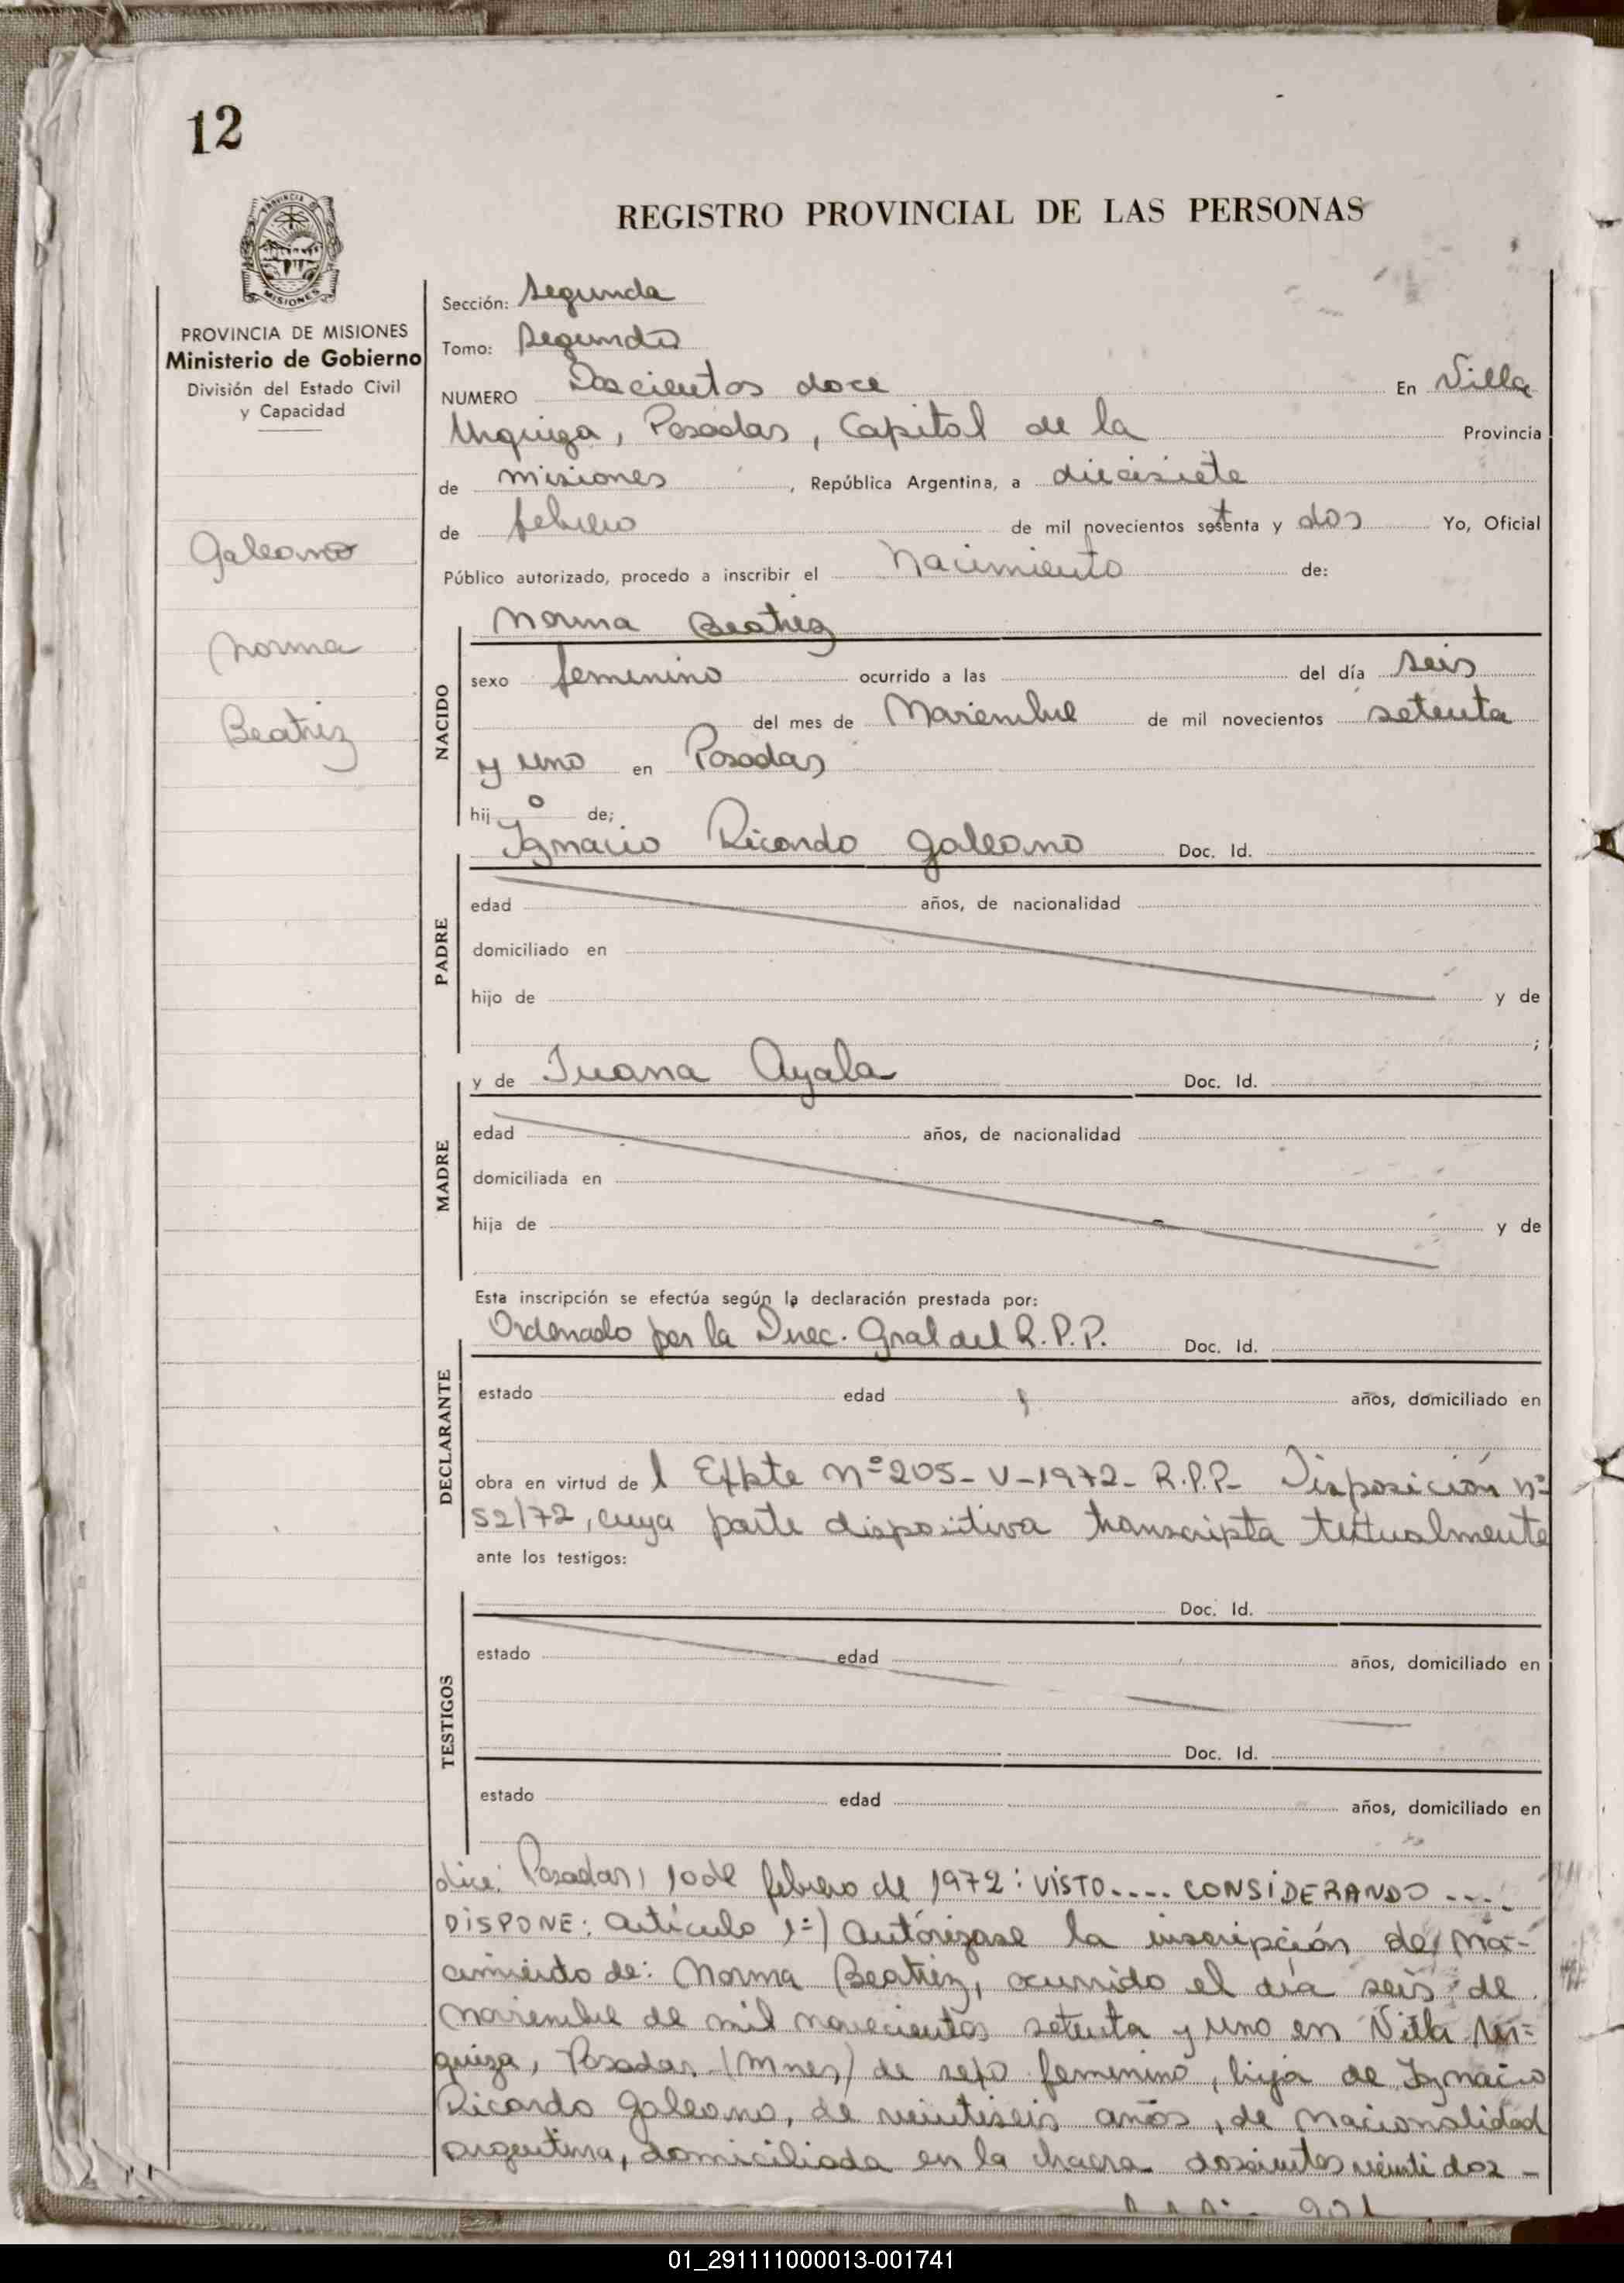 12
PROVINCIA DE
MISIONES
PROVINCIA DE MISIONES
Ministerio de Gobierno
División del Estado Civil
y Capacidad
Galeano
Norma
Beatriz
REGISTRO PROVINCIAL DE LAS PERSONAS
Sección: Segunda
Tomo: Segundo
NUMERO Doscientos doce En Villa
Urquiza, Posadas, Capital de la Provincia
de misiones, República Argentina, a diecisiete
de febrero de mil novecientos setenta y dos Yo, Oficial
Público autorizado, procedo a inscribir el Nacimiento de:
Norma Beatriz
NACIDO
sexo femenino ocurrido a las del día seis
del mes de Noviembre de mil novecientos setenta
y uno en Posadas
hij o de;
Ignacio Ricardo Galeano Doc. Id.
PADRE
edad años, de nacionalidad
domiciliado en
hijo de y de
;
y de Juana Ayala Doc. Id.
MADRE
edad años, de nacionalidad
domiciliada en
hija de y de
Esta inscripción se efectúa según la declaración prestada por:
Ordenado por la Direc. Gral del R.P.P. Doc. Id.
DECLARANTE
estado edad años, domiciliado en
obra en virtud de l Expte Nº 205-V-1972- R.P.P- Disposición nº
52/72, cuya parte dispositiva transcripta textualmente
ante los testigos:
Doc. Id.
TESTIGOS
estado edad años, domiciliado en
Doc. Id.
estado edad años, domiciliado en
dice: Posadas, 10 de febrero de 1972: VISTO.... CONSIDERANDO ....
DISPONE: Artículo 1º) Autórizase la inscripción del Na-
cimiento de: Norma Beatriz, ocurrido el día seis de
Noviembre de mil novecientos setenta y uno en Villa Ur=
quiza, Posadas (Mnes) de sexo femenino, hija de Ignacio
Ricardo Galeano, de veintiseis años, de Nacionalidad
argentina, domiciliada en la chacra doscientos veinti dos -
01_291111000013-001741